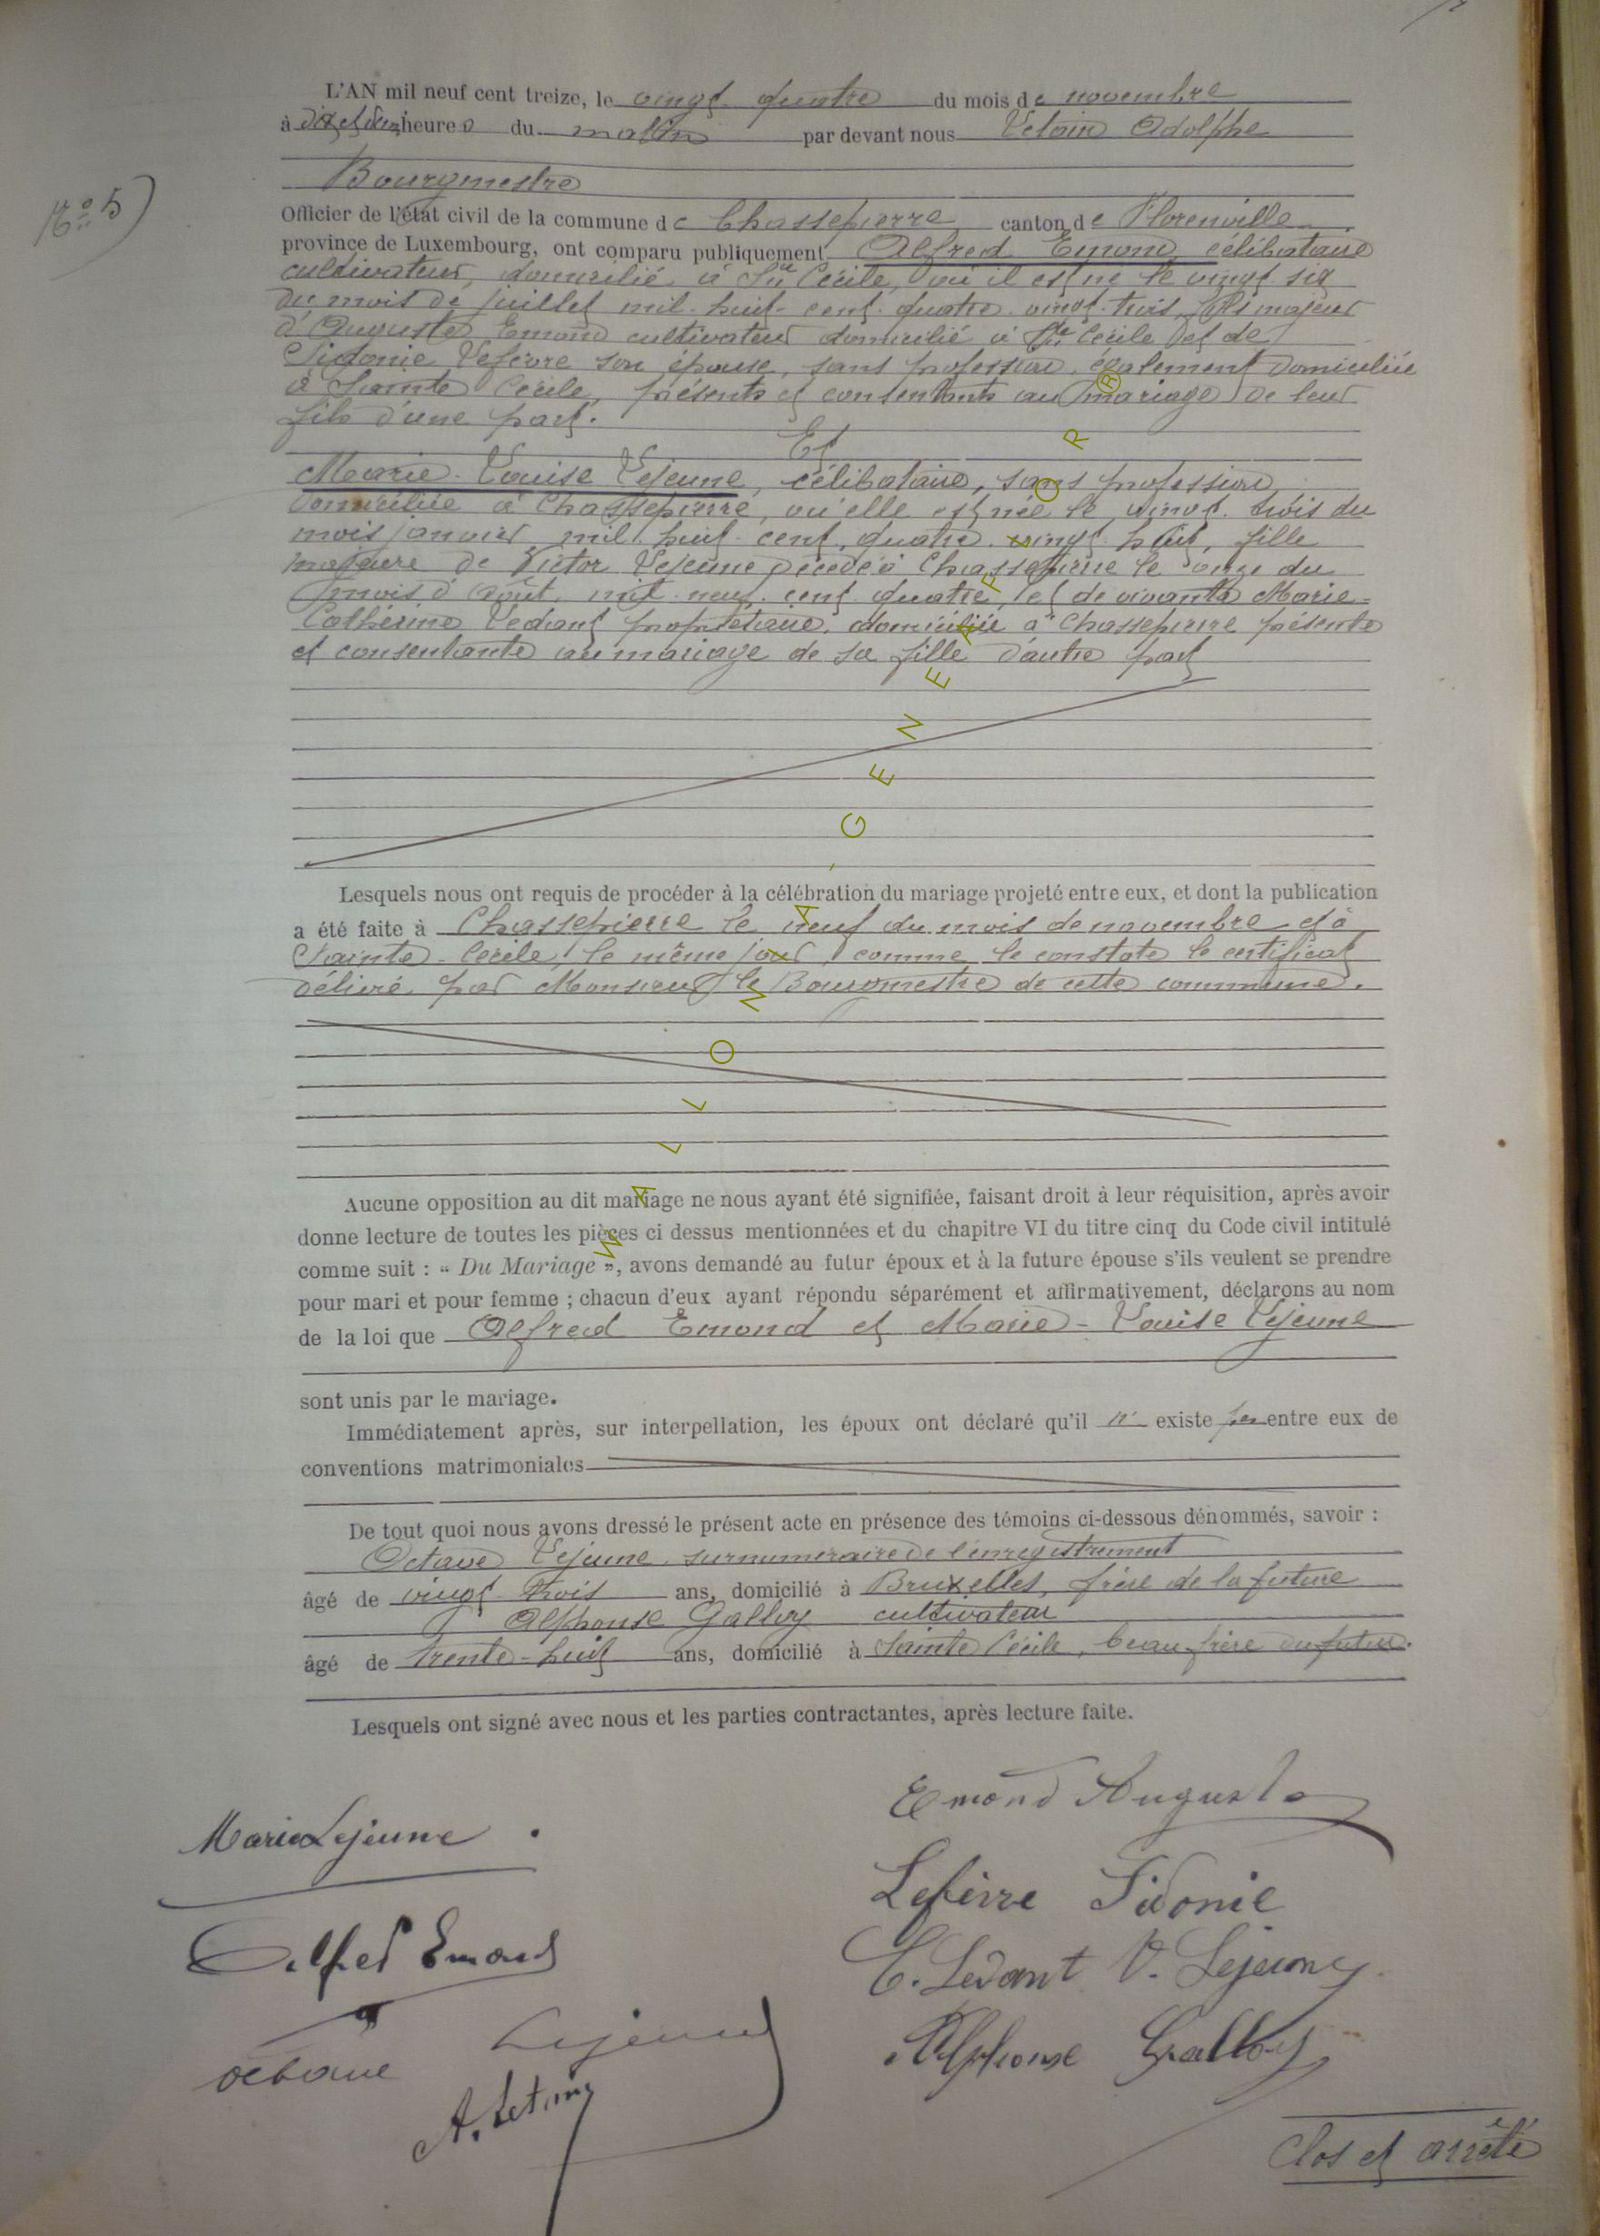 L'AN mil neuf cent treize, le vingt quatre du mois de novembre
à heures du matin par devant nous Letain Adolphe
Bourgmestre
N° 5)
Officier de l'état civil de la commune de Chassepierre canton de Florenville
province de Luxembourg, ont comparu publiquement Alfred Emond célibataire
cultivateur, domicilié à Ste Cécile, où il est né le vingt six
du mois de juillet mil huit cent quatre vingt trois, fils majeur
d'Auguste Emond cultivateur domicilié à Ste Cécile et de
Sidonie Lefèvre son épouse, sans profession, également domiciliée
à Sainte Cécile, présents et consentants au mariage de leur
fils d'une part.
Et
Marie-Louise Lejeune, célibataire, sans profession
domiciliée à Chassepierre, où elle est née le vingt trois du
mois janvier mil huit cent quatre vingt huit, fille
majeure de Victor Lejeune décédé à Chassepierre le onze du
mois d'août mil neuf cent quatre, et de vivante Marie-
Cathérine Ledant propriétaire, domiciliée à Chassepierre présente
et consentante au mariage de sa fille d'autre part
Lesquels nous ont requis de procéder à la célébration du mariage projeté entre eux, et dont la publication
a été faite à Chassepierre le neuf du mois de novembre et à
Sainte-Cécile, le même jour, comme le constate le certificat
délivré par Monsieur le Bourgmestre de cette commune.
Aucune opposition au dit mariage ne nous ayant été signifiée, faisant droit à leur réquisition, après avoir
donne lecture de toutes les pièces ci dessus mentionnées et du chapitre VI du titre cinq du Code civil intitulé
comme suit : « Du Mariage », avons demandé au futur époux et à la future épouse s'ils veulent se prendre
pour mari et pour femme ; chacun d'eux ayant répondu séparément et affirmativement, déclarons au nom
de la loi que Alfred Emond et Marie-Louise Lejeune
sont unis par le mariage.
Immédiatement après, sur interpellation, les époux ont déclaré qu'il n' existe pas entre eux de
conventions matrimoniales
De tout quoi nous avons dressé le présent acte en présence des témoins ci-dessous dénommés, savoir :
Octave Lejeune, surnuméraire de l'enregistrement
âgé de vingt trois ans, domicilié à Bruxelles, frère de la future
Alphonse Galloy cultivateur
âgé de trente-huit ans, domicilié à Sainte Cécile, beau-frère du futur.
Lesquels ont signé avec nous et les parties contractantes, après lecture faite.
Emond Auguste
Marie Lejeune.
Lefèvre Sidonie
Alfred Emond
C. Ledant V. Lejeune
Octave Lejeune
Alphonse Galloy
A. Letain
Clos et arrêté
WALLONIA - GENEALOR ®